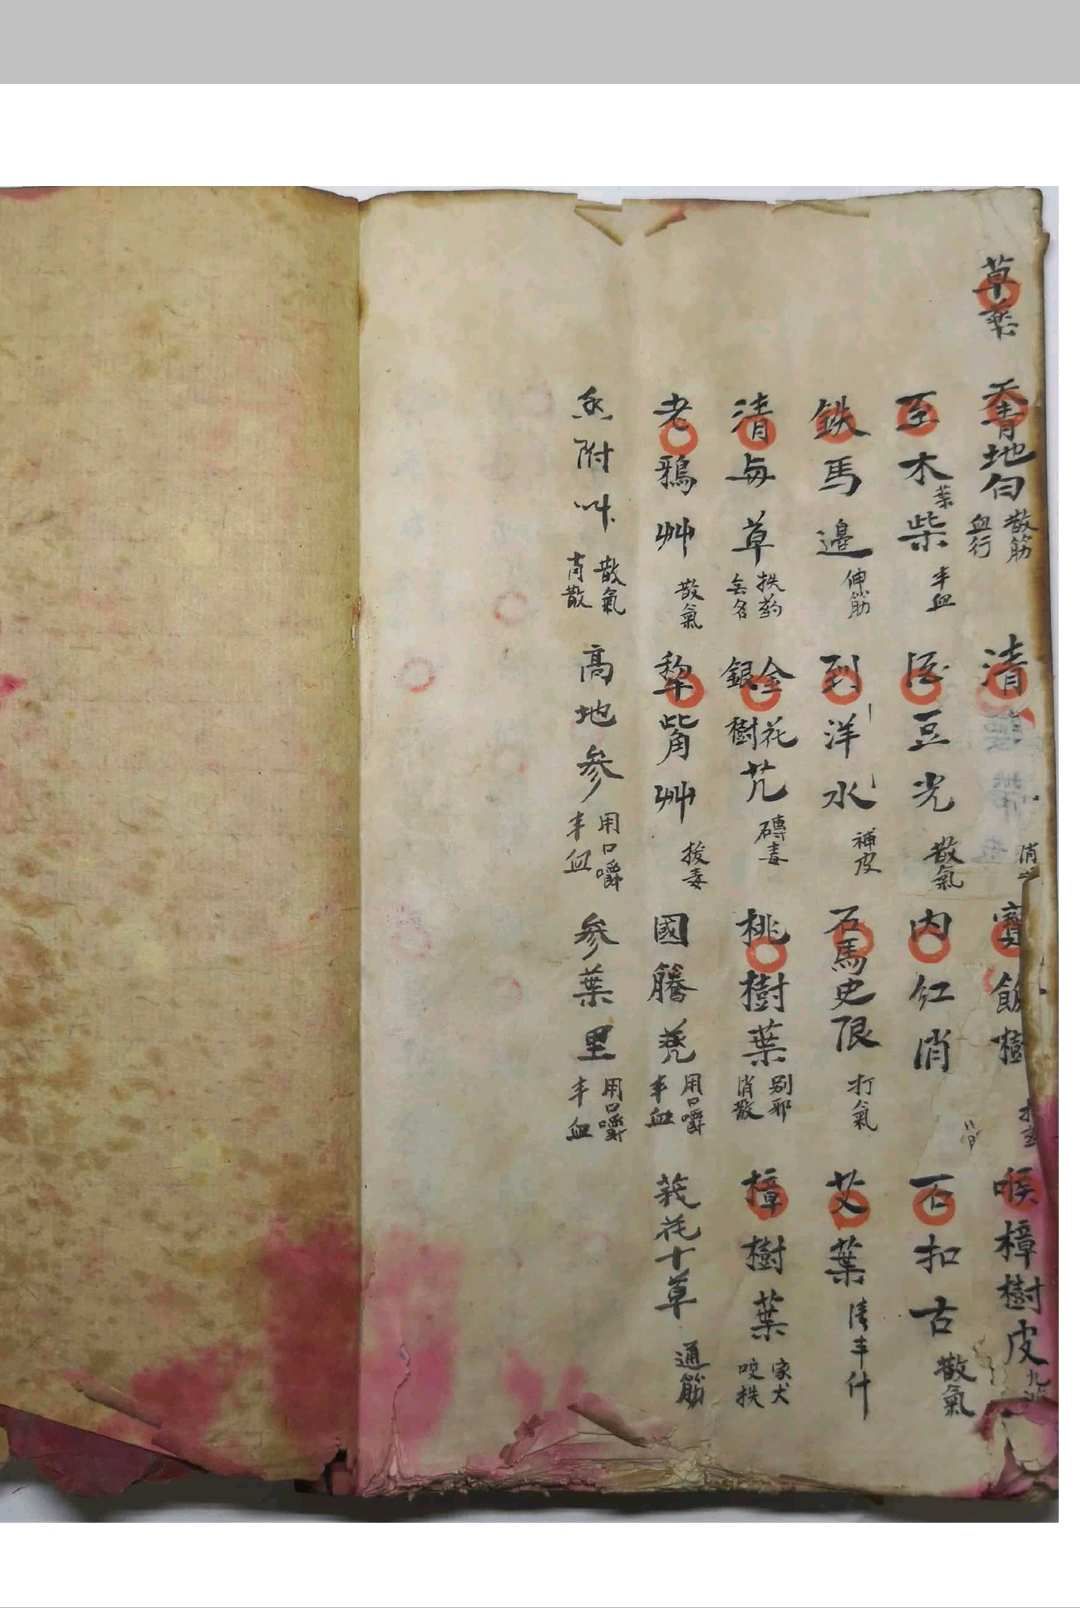 草藥
天青地白 散筋 血行 清
寶飯樹
喉樟樹皮
百木柴 葉 丰血 豆光 散氣 内红消 石扣古 散氣
鉄馬邉 伸筋 到洋水 補皮 石馬史限 打氣 艾葉
清毎草 跌药 金花銀樹艽 磚毒 桃樹葉 别邪 消散 樟樹葉 家犬 咬跌
老鴉艸 散氣 犂觜艸 拔毒 國騰蔸 用口嚼 丰血 莪花十草 通筋
香附艸 散氣 肖散 高地参 用口嚼 丰血 参葉里 用口嚼 丰血